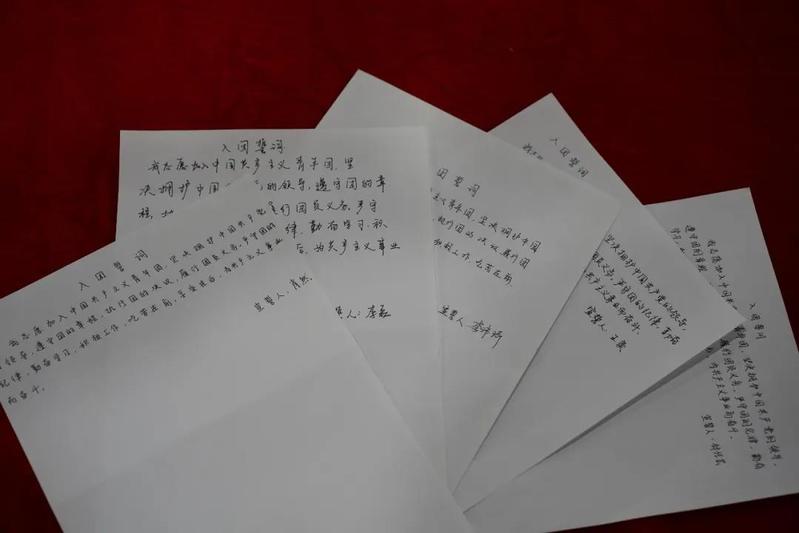 入团誓词
我志愿加入中国共产主义青年团,坚决拥护中国共产党
领导,遵守团的章程,执行团的决议,履行团员义务,严守团的
纪律,勤奋学习,积极工作,吃苦在前,享受在后,为共产主义事业
而奋斗。
宣誓人:肖然
入团誓词
我志愿加入中国共产主义青年团,坚
决拥护中国 的领导,遵守团的章
程, 行团员义务,严守
律,勤奋学习,积
为共产主义事业
誓人:李
团誓词
主义青年团,坚决拥护中国
执行团的决议,履行团
积极工作,吃苦在前
宣誓人:李
入团誓词
坚决拥护中国共产党的领导,
团员义务,严守团的纪律,勤奋
共产主义事业而奋斗。
宣誓人:王
入团誓词
我志愿加入中国共 青年团,坚决拥护中国共产党的领导,
遵守团的章程 履行团员义务,严守团的纪律,勤奋
学习, 为共产主义事业而奋斗。
宣誓人: